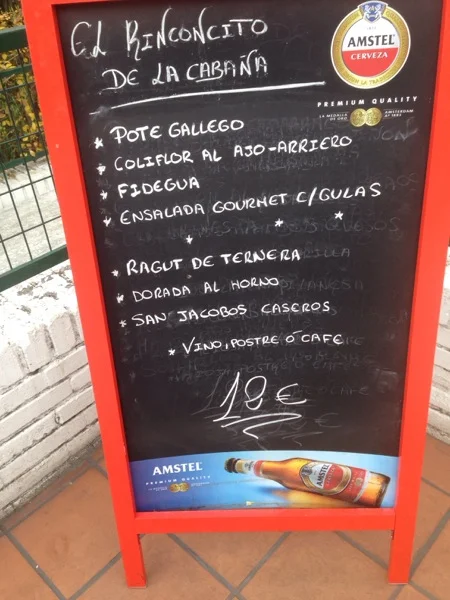 EL RINCONCITO
DE LA CABAÑA
AMSTEL
CERVEZA
PREMIUM QUALITY
* POTE GALLEGO
* COLIFLOR AL AJO-ARRIERO
* FIDEGUA
* ENSALADA GOURMET C/GULAS
* * *
* RAGUT DE TERNERA
* DORADA AL HORNO
* SAN JACOBOS CASEROS
* VINO, POSTRE Ó CAFE
12 €
AMSTEL
PREMIUM QUALITY
AMSTEL